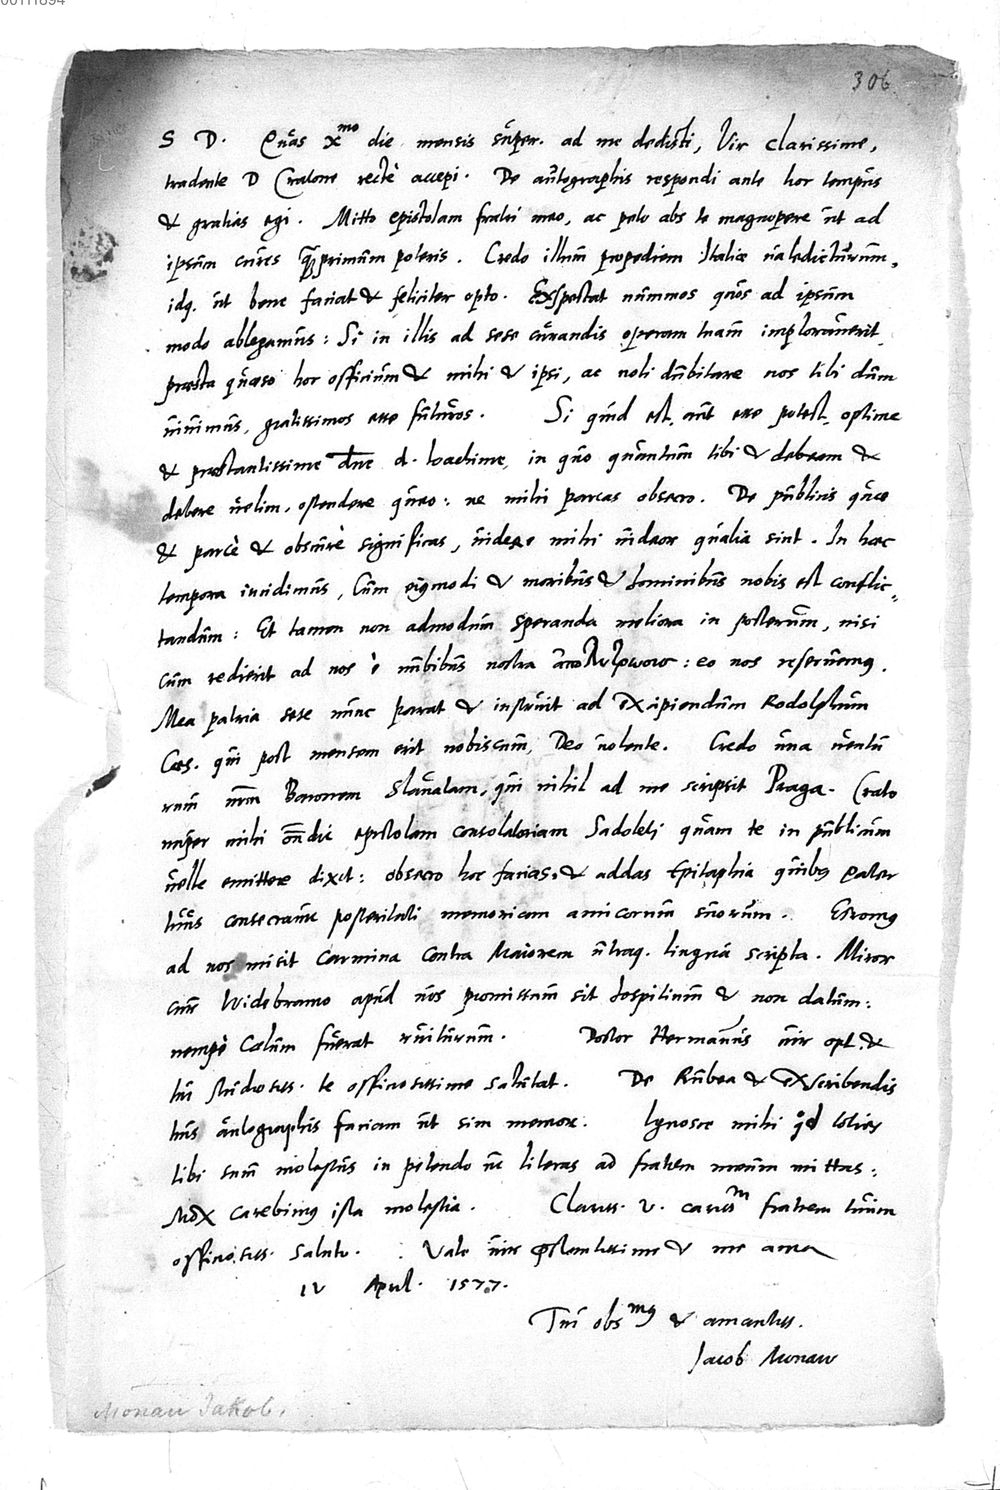 00111894
306
S D. Quas X^mo die mensis super. ad me dedisti, Vir clarissime,
tradente D Cratone rectè accepi. De autographis respondi ante hoc tempus
& gratias egi. Mitto epistolam fratri meo, ac peto abs te magnopere ut ad
ipsum cures primum poteris. Credo illum propediem Italiae valedicturum,
idq. ut bene faciat & feliciter opto. Expectat nummos quos ad ipsum
modo ablegamus: Si in illis ad sese curandis operam tuam imploraverit,
praesta quaeso hoc officium & mihi & ipsi, ac noli dubitare nos tibi dum
vivimus, gratissimos esse futuros. Si quid est, aut esse potest, optime
& praestantissime dne d. Ioachime, in quo quantum tibi & debeam &
debere velim, ostendere queo: ne mihi parcas obsecro. De publicis quae
& parcè & obscurè significas, videre mihi videor qualia sint. In haec
tempora incidimus, Cum eiusmodi & moribus & hominibus nobis est conflic-
tandum: Et tamen non admodum speranda meliora in posterum, nisi
cum redierit ad nos è nubibus nostra ἀπολύτρωσις: eo nos reservemus.
Mea patria sese nunc parat & instruit ad excipiendum Rodolphum
Caes. qui post mensem erit nobiscum, Deo volente. Credo una ventu
rum Baronem Slavatam, qui nihil ad me scripsit Praga. Crato
nuper mihi epistolam consolatoriam Sadoleti quam te in publicum
velle emittere dixit: obsecro hoc facias, & addas Epitaphia quibus pater
tuus consecravit posteritati memoriam amicorum suorum. Estromus
ad nos misit Carmina contra Maiorem utraq. lingua scripta. Miror
cur Widebramo apud vos promissum sit hospitium & non datum:
nempè Coelum fuerat ruiturum. Doctor Hermannus vir opt. &
tui studiosiss. te officiosissime salutat. De Rubea & exscribendis
tuis autographis faciam ut sim memor. Ignosce mihi qd toties
tibi sum molestus in petendo ut literas ad fratrem meum mittas:
Mox carebimus ista molestia. Clariss. v. cariss^m fratrem tuum
officiosiss. saluto. Vale vir praestantissime & me ama
IV April. 1577.
Tui obs^mus & amantiss.
Jacob Monaw
Monau Jakob.